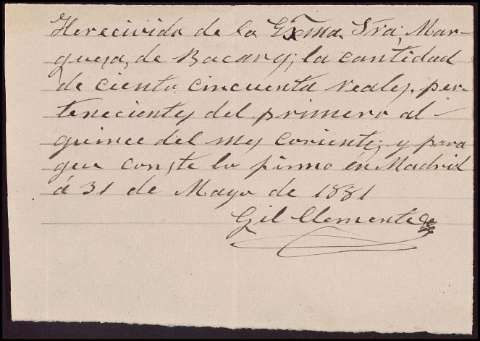 He recivido de la Exma Sra; Mar-
quesa, de Bacares; la cantidad
de ciento, cincuenta reales, per-
tenecientes del primero al
quince del mes coriente; y para
que conste lo firmo en Madrid
á 31 de Mayo de 1881
Gil Clemente